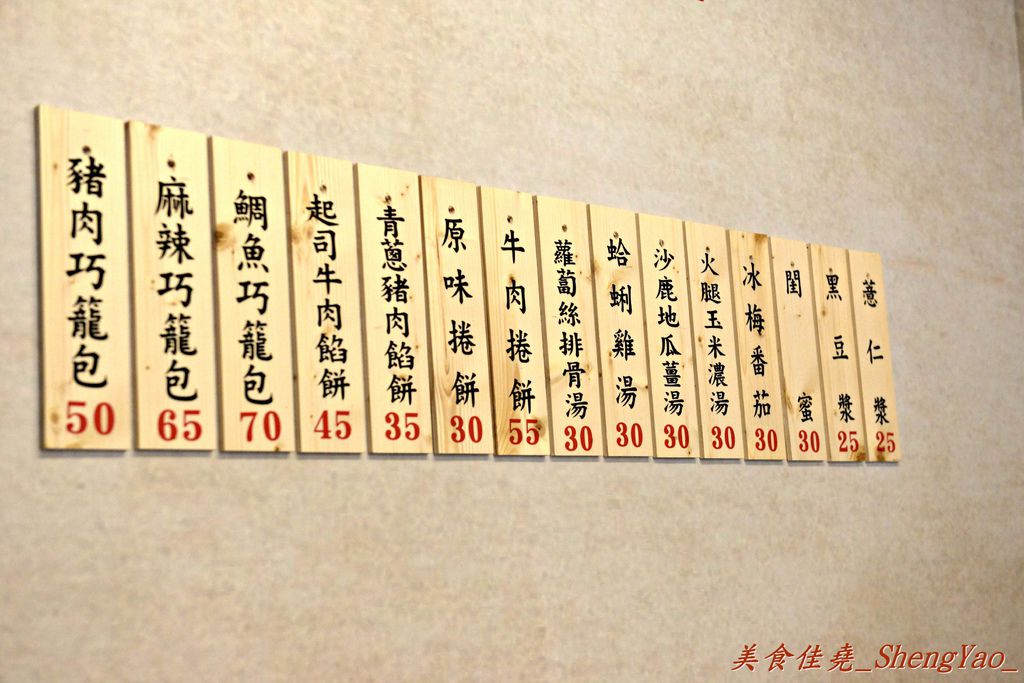 豬肉巧籠包
50
麻辣巧籠包
65
鯛魚巧籠包
70
起司牛肉餡餅
45
青蔥豬肉餡餅
35
原味捲餅
30
牛肉捲餅
55
蘿蔔絲排骨湯
30
蛤蜊雞湯
30
沙鹿地瓜薑湯
30
火腿玉米濃湯
30
冰梅番茄
30
閨蜜
30
黑豆漿
25
薏仁漿
25
美食佳堯_ShengYao_